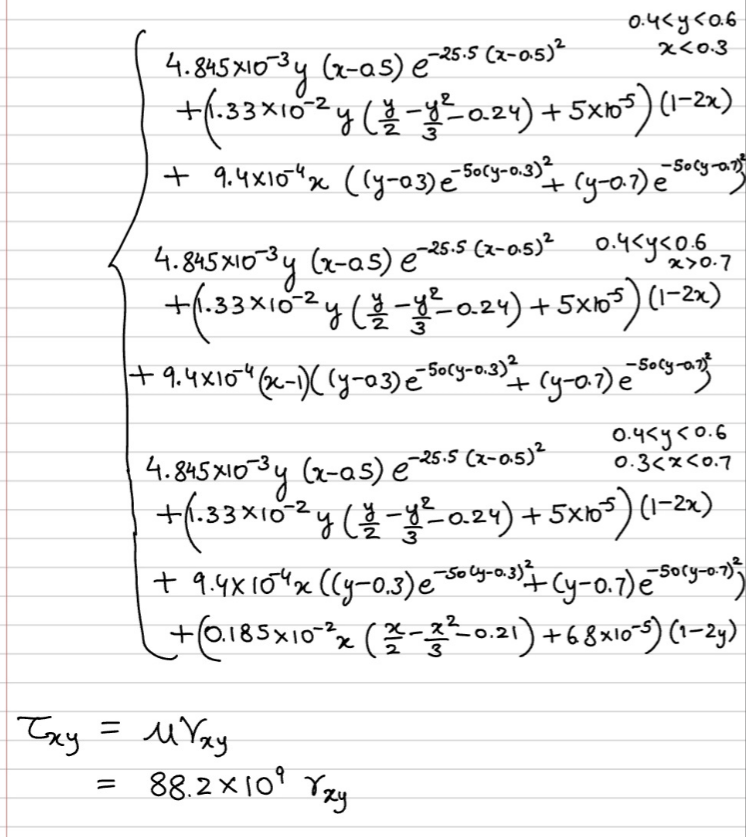 0.4<y<0.6
x<0.3
4.845×10⁻³y (x-0.5) e^{-25.5 (x-0.5)²}
+(1.33×10⁻² y (y/2 - y²/3 - 0.24) + 5×10⁻⁵) (1-2x)
+ 9.4×10⁻⁴x ((y-0.3)e^{-50(y-0.3)²} + (y-0.7)e^{-50(y-0.7)²})
4.845×10⁻³y (x-0.5) e^{-25.5 (x-0.5)²} 0.4<y<0.6
x>0.7
+(1.33×10⁻² y (y/2 - y²/3 - 0.24) + 5×10⁻⁵) (1-2x)
+ 9.4×10⁻⁴(x-1)((y-0.3)e^{-50(y-0.3)²} + (y-0.7)e^{-50(y-0.7)²})
0.4<y<0.6
0.3<x<0.7
4.845×10⁻³y (x-0.5) e^{-25.5 (x-0.5)²}
+(1.33×10⁻² y (y/2 - y²/3 - 0.24) + 5×10⁻⁵) (1-2x)
+ 9.4×10⁻⁴x ((y-0.3)e^{-50(y-0.3)²} + (y-0.7)e^{-50(y-0.7)²})
+(0.185×10⁻²x (x/2 - x²/3 - 0.21) + 6.8×10⁻⁵) (1-2y)
τxy = μγxy
= 88.2×10⁹ γxy